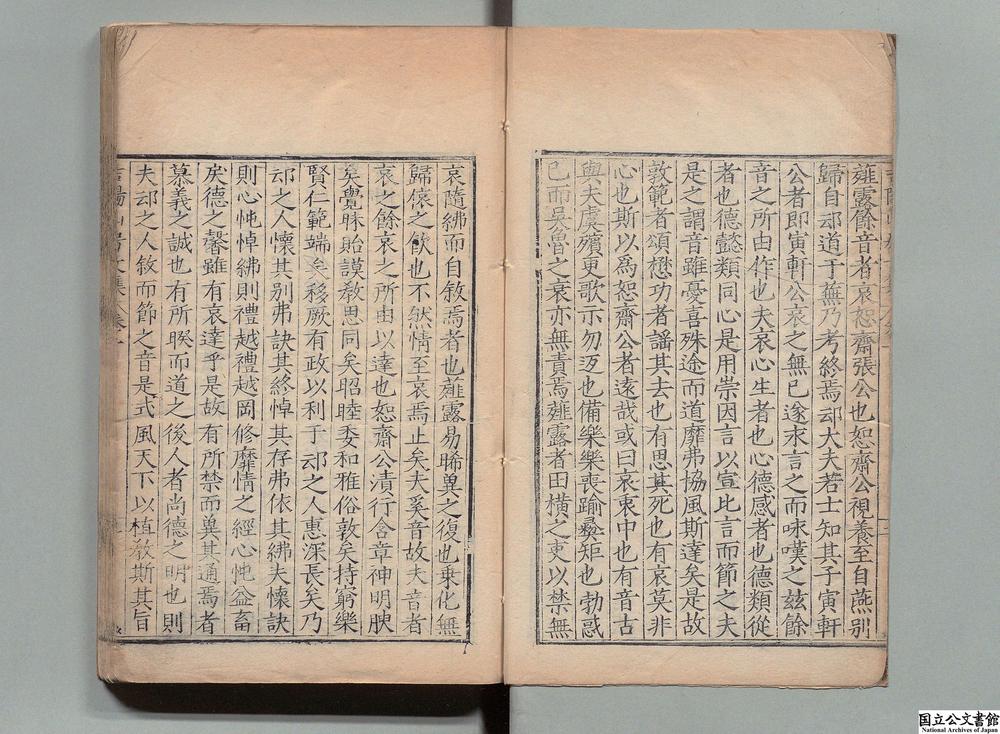 薤露餘音者哀恕齋張公也恕齋公視養至自燕別
歸自邵道于蕪乃考終焉邵大夫若士知其子寅軒
公者即寅軒公哀之無已遂求言之而咏嘆之茲餘
音之所由作也夫哀心生者也心德感者也德類從
者也德懿類同心是用崇因言以宣比言而節之夫
是之謂音雖憂喜殊途而道靡弗協風斯達矣是故
敦範者頌懋功者謡其去也有思其死也有哀莫非
心也斯以爲恕齋公者遠哉或曰哀衷中也有音古
與夫虞殯更歌示勿迓也備樂樂喪踰彜矩也勃惑
已而吳魯之哀亦無責焉薤露者田横之東以禁無
哀隨紼而自敘焉者也薤露易晞兾之復也乗化無
歸傷之飲也不然情至哀焉止矣夫奚音故夫音者
哀之餘哀之所由以達也恕齋公漬行含章神明腴
矣黌昧貽謨敎思同矣昭睦委和雅俗敦矣持窮樂
賢仁範端矣移厥有政以利于邵之人惠深長矣乃
邵之人懷其别弗訣其終悼其存弗依其紼夫懷訣
則心忳悼紼則禮越禮越罔修靡情之經心忳益畜
矣德之馨雖有哀達乎是故有所禁而兾其通焉者
慕義之誠也有所睽而道之後人者尚德之明也則
夫邵之人敘而節之音是式風天下以植敎斯其旨
国立公文書館
National Archives of Japan